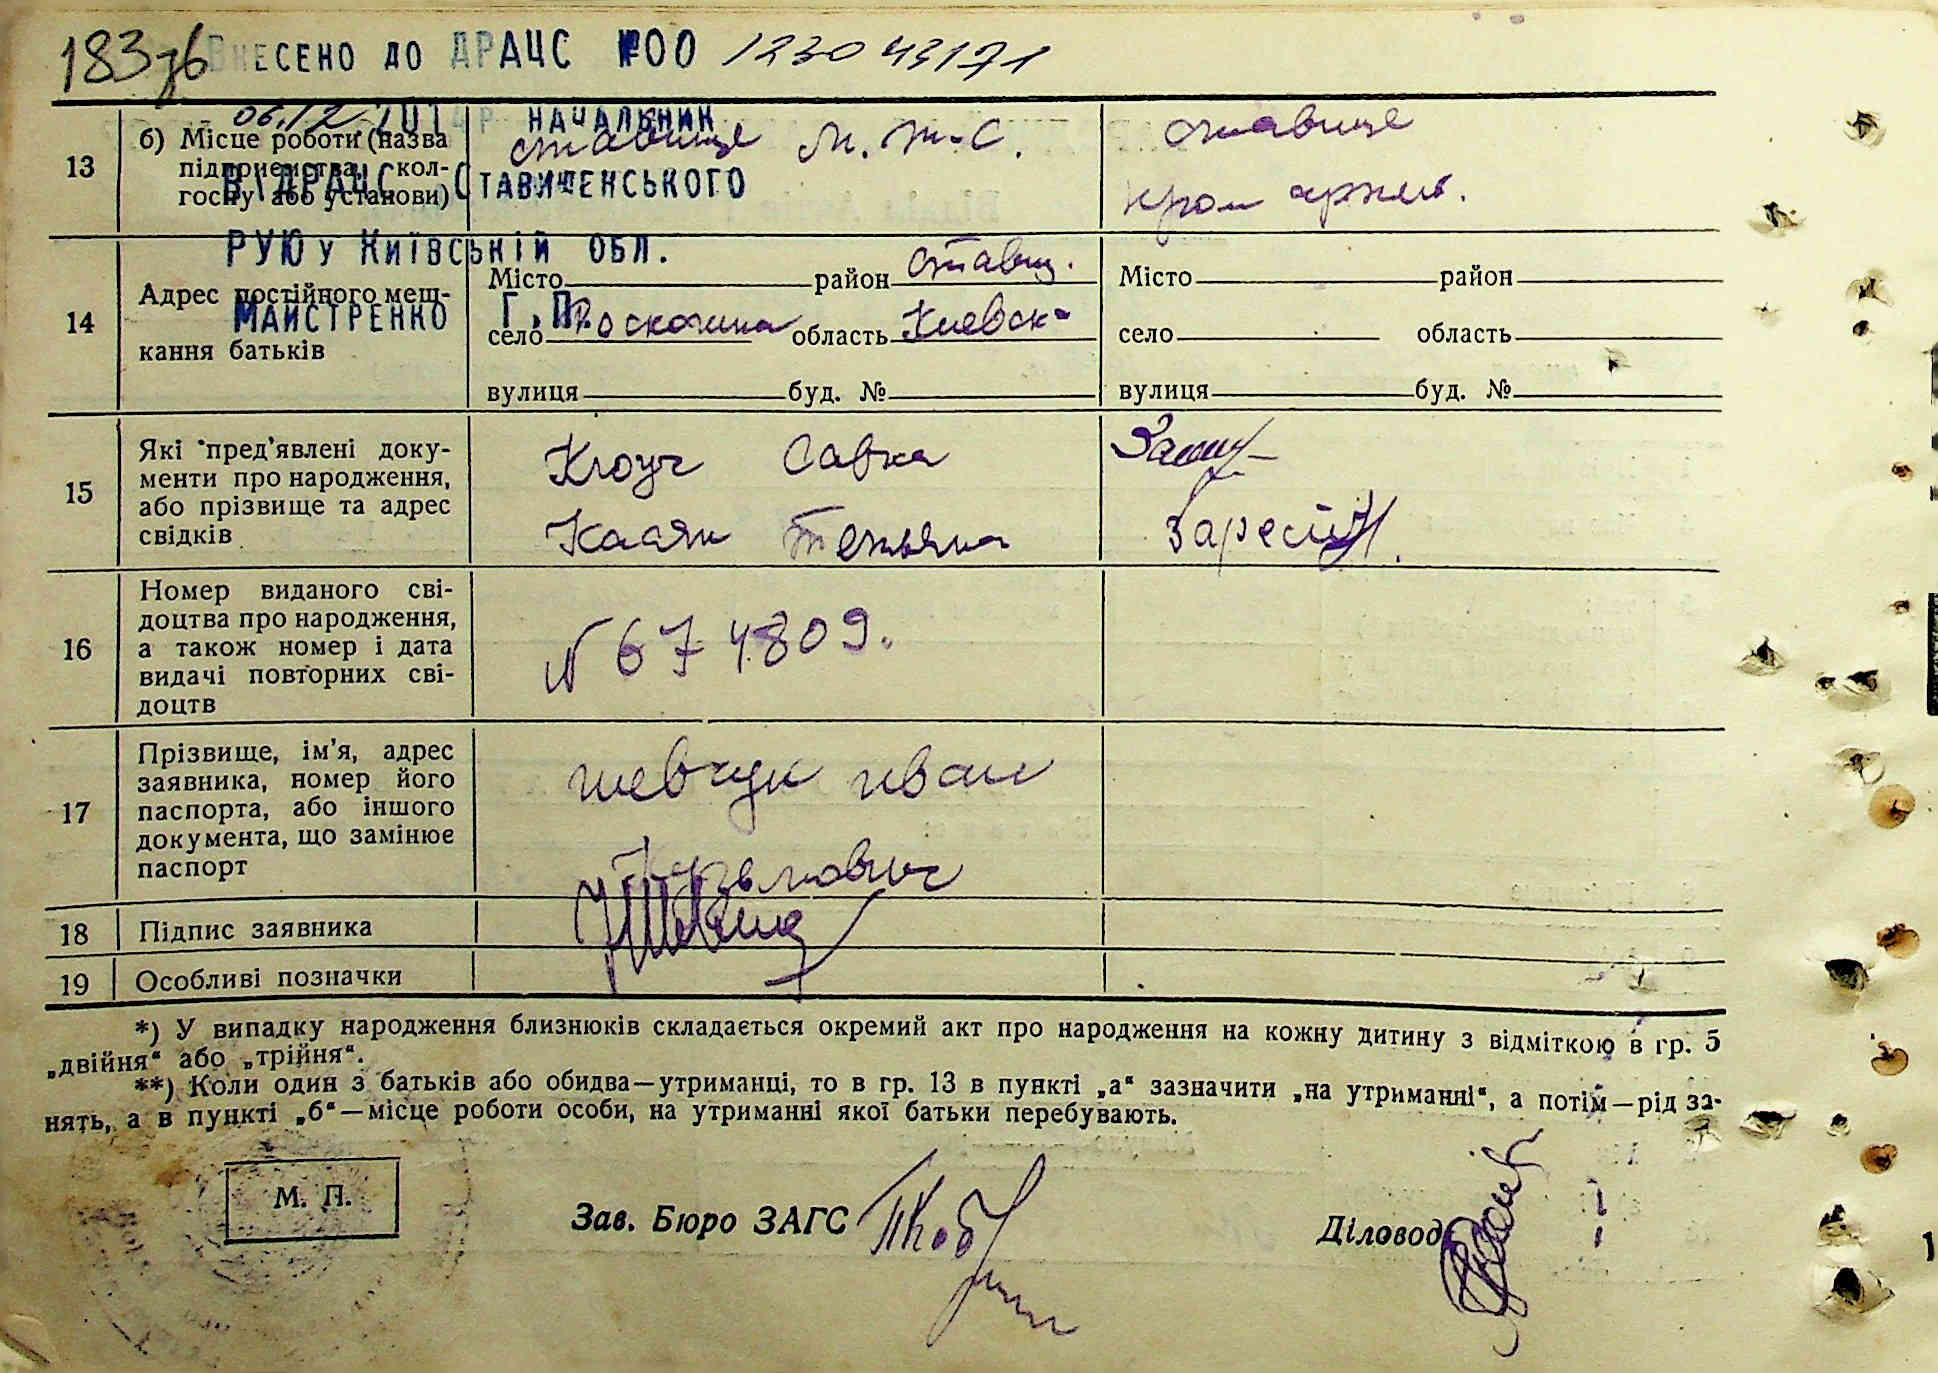 183зв Внесено до ДРАЦС №00 1230 43171
06.12.2014р. начальник
ВДРАЦС Ставищенського
РУЮ у Київській обл.
Майстренко Г.П.
13 б) Місце роботи (назва підприємства, колгоспу або установи)
ставище М.Т.С.
ставище
пром артель.
14 Адрес постійного мешкання батьків
Місто район Ставищ.
село область Киевск
вулиця буд. №
Місто район
село область
вулиця буд. №
15 Які пред'явлені документи про народження, або прізвище та адрес свідків
Савка
Тетьяна
16 Номер виданого свідоцтва про народження, а також номер і дата видачі повторних свідоцтв
N 674809.
17 Прізвище, ім'я, адрес заявника, номер його паспорта, або іншого документа, що замінює паспорт
шевчук иван
Кузьмович
18 Підпис заявника
19 Особливі позначки
*) У випадку народження близнюків складається окремий акт про народження на кожну дитину з відміткою в гр. 5
„двійня“ або „трійня“.
**) Коли один з батьків або обидва—утриманці, то в гр. 13 в пункті „а“ зазначити „на утриманні“, а потім—рід за-
нять, а в пункті „б“—місце роботи особи, на утриманні якої батьки перебувають.
М. П.
Зав. Бюро ЗАГС
Діловод